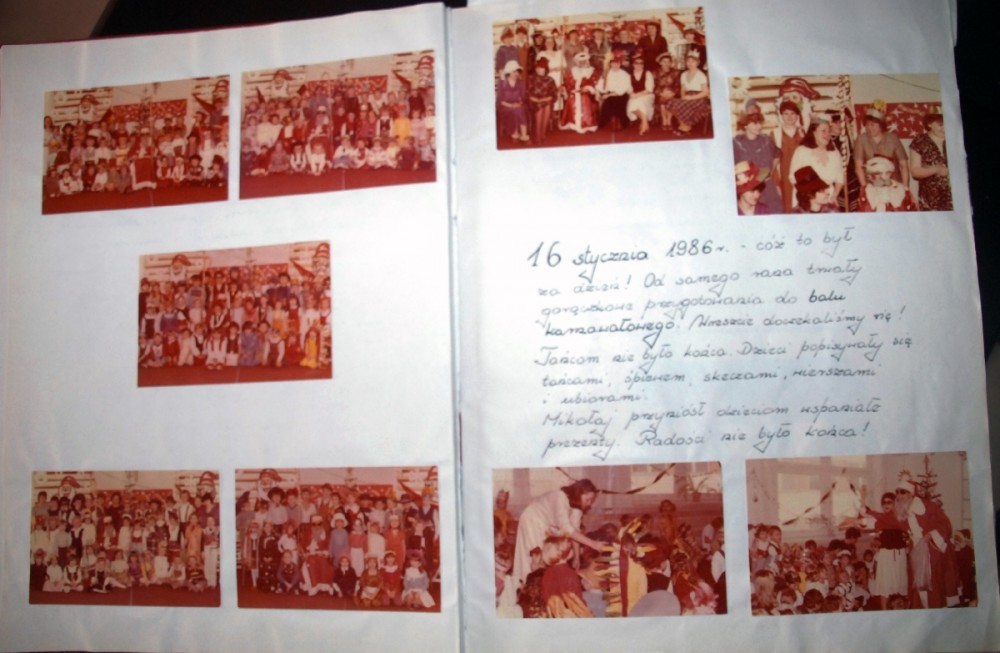 16 stycznia 1986r. - cóż to był
za dzień! Od samego rana trwały
gorączkowe przygotowania do balu
karnawałowego. Wreszcie doczekaliśmy się!
Tańcom nie było końca. Dzieci popisywały się
tańcami, śpiewem, skeczami, wierszami
i ubiorami.
Mikołaj przyniósł dzieciom wspaniałe
prezenty. Radości nie było końca!